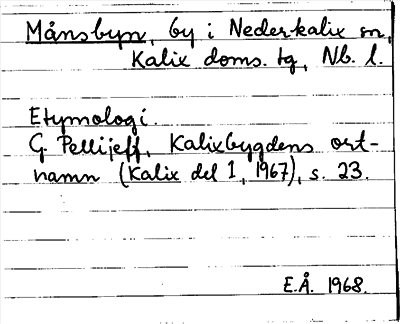 Månsbyn, by i Nederkalix sn,
Kalix doms. tg, Nb. l.
Etymologi.
G. Pellijeff, Kalixbygdens ort-
namn (Kalix del 1, 1967), s. 23.
E.Å. 1968.